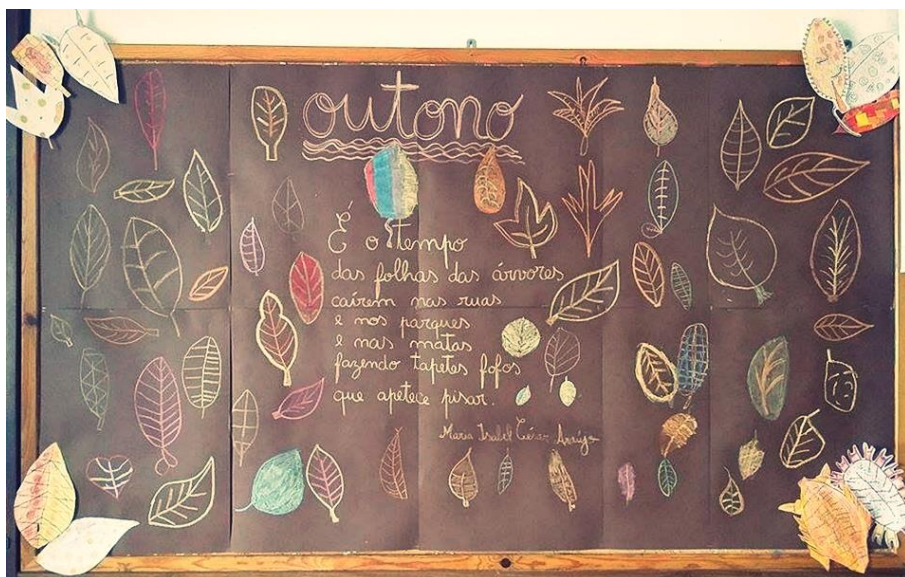 outono
É o tempo
das folhas das árvores
caírem nas ruas
e nos parques
e nas matas
fazendo tapetes fofos
que apetece pisar.
Maria Isabel César Araújo